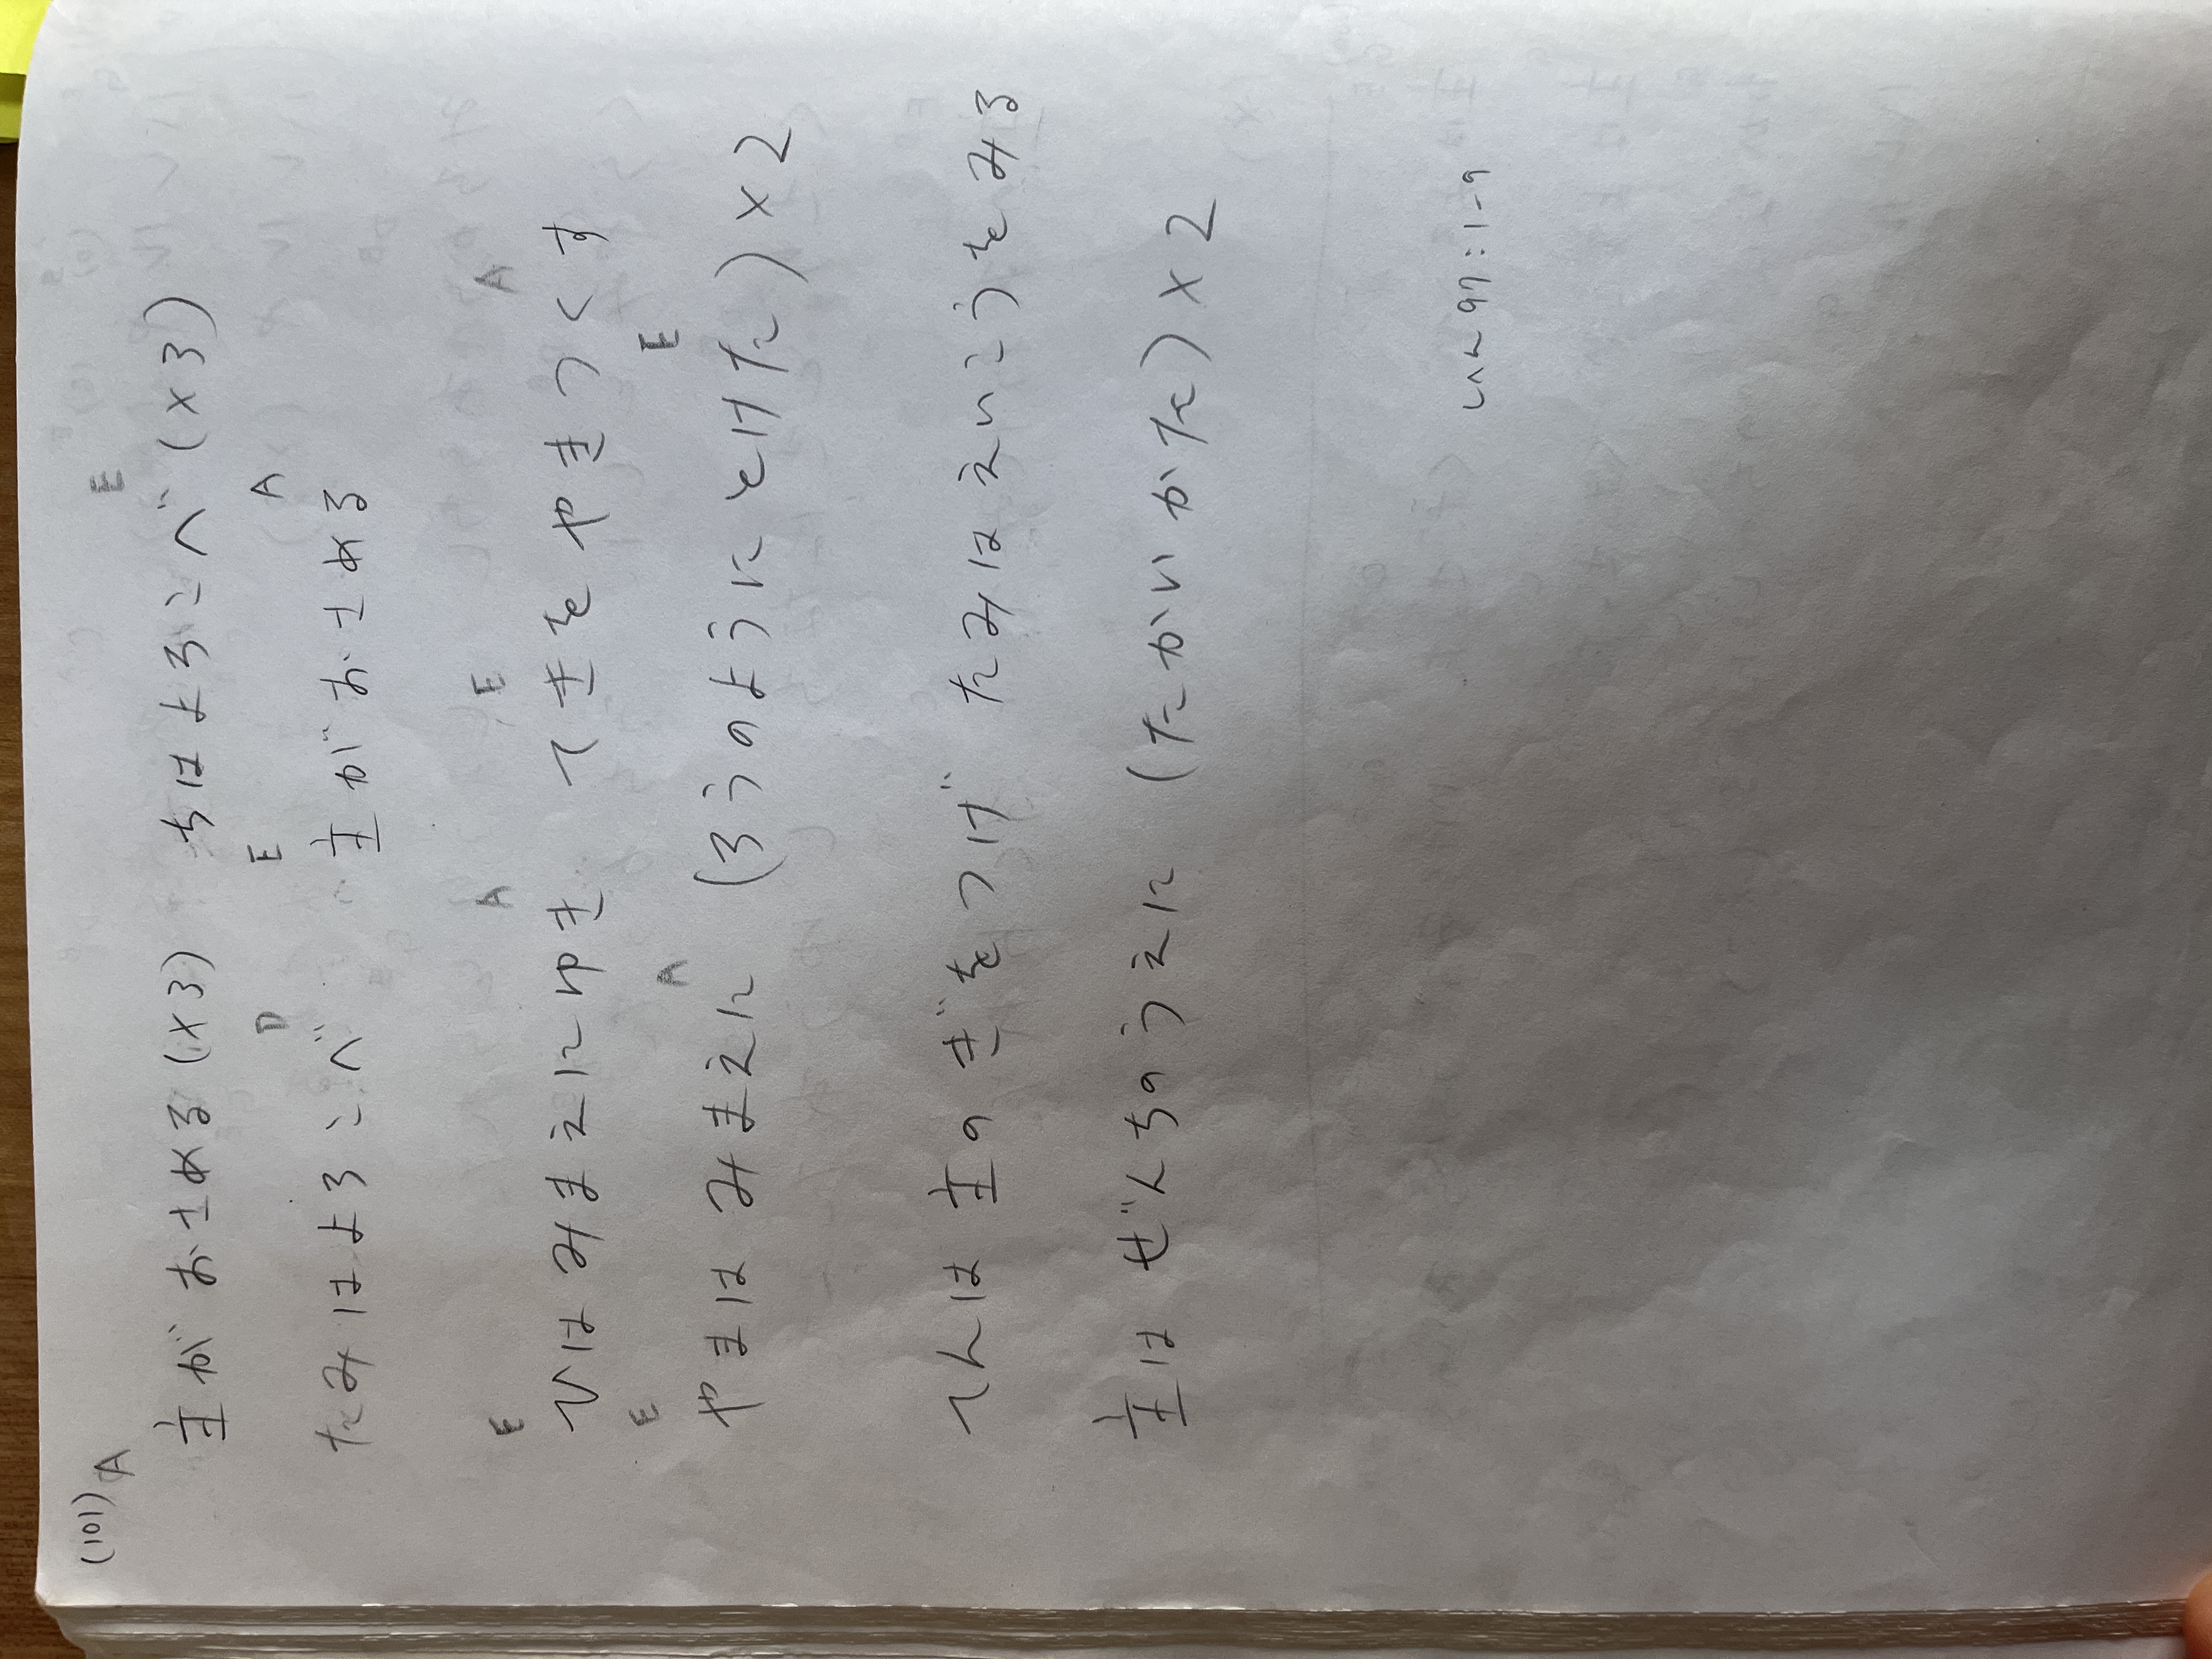 (101)
A E
主が おさめる(×3) ちはよろこべ (×3)
D E A
たみはよろこべ 主がおさめる
E A E A
ひはみまえにゆき てきをやきつくす
E A E
やまは みまえに (ろうのようにとけた)×2
てんは 主のぎをつげ たみはえいこうをみる
主は ぜんちのうえに (たかいかた)×2
しへん97:1-9